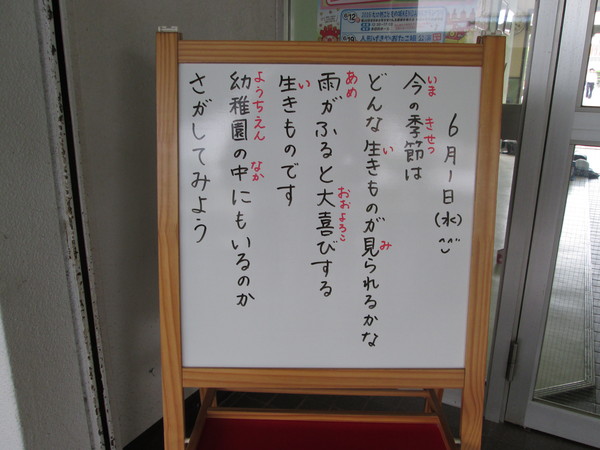 6月1日(水)
今の季節は
いま きせつ
どんな生きものが見られるかな
い み
雨がふると大喜びする
あめ おおよろこ
生きものです
い
幼稚園の中にもいるのか
ようちえん なか
さがしてみよう